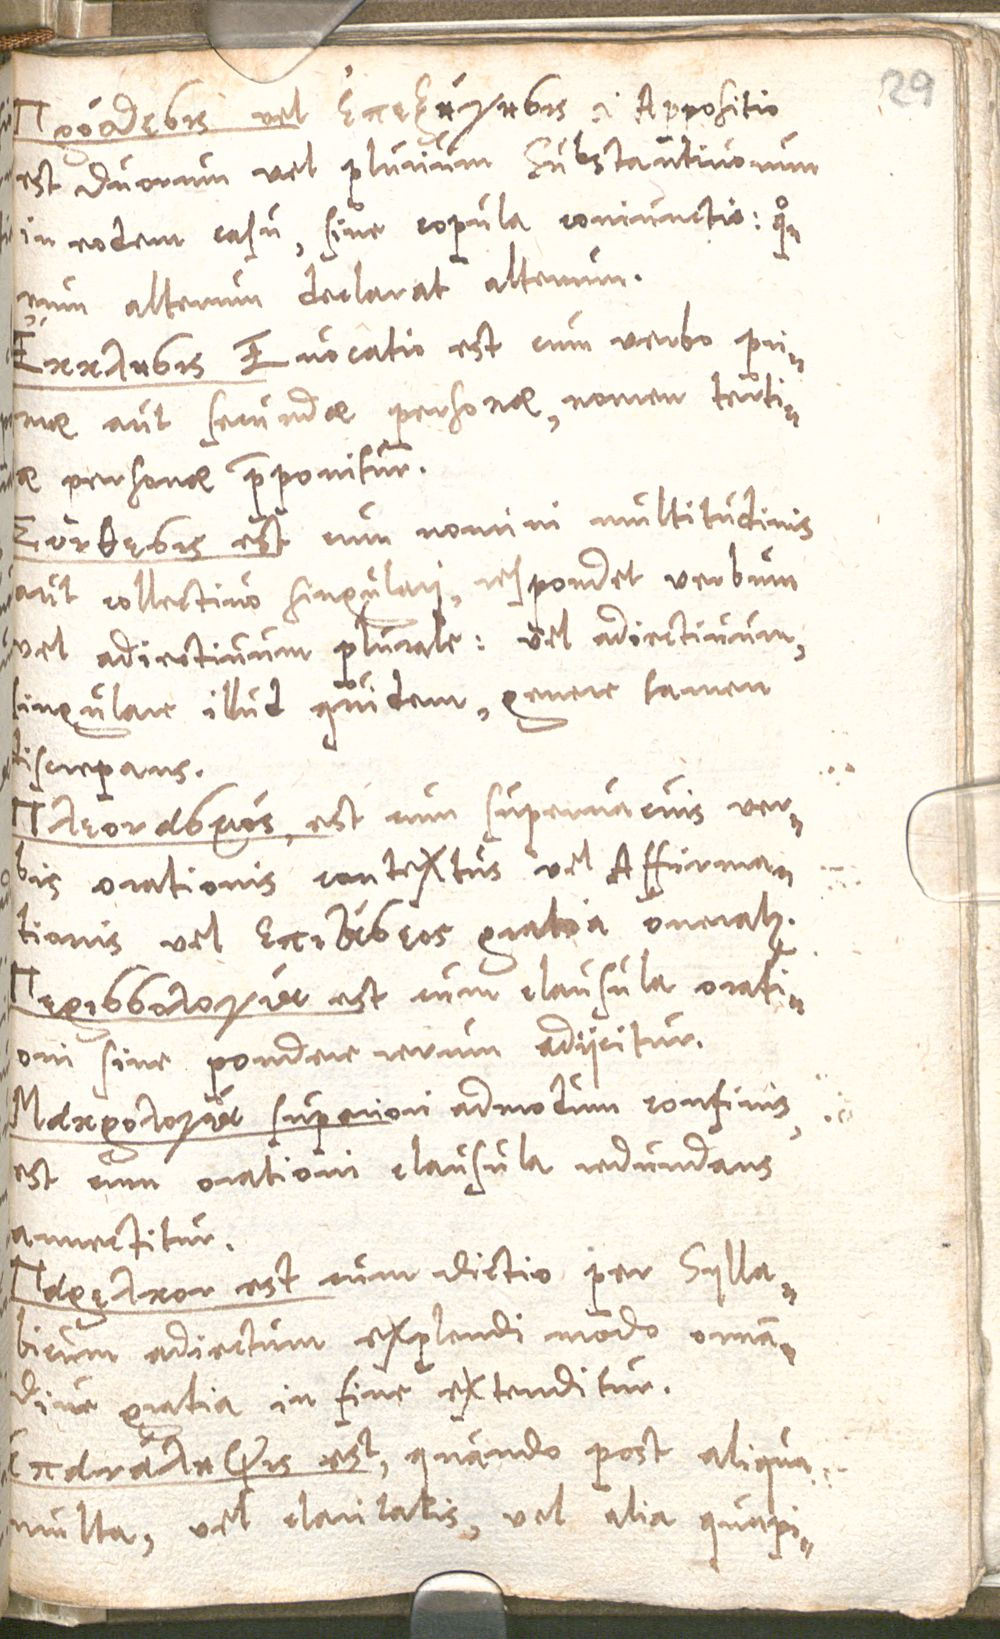 29
Πρόσθεσις vel ἐπεξήγησις i Appositio
est duorum vel plurium Substantivorum
in eodem casu, sine copula coniunctio: qn̄
cum alterum declarat alterum.
Ἔκκλησις Evocatio est cum verbo pri„
mæ aut secundæ personæ, nomen terti„
æ personæ p̄ponitur.
Σύνθεσις est cum nomini multitudinis
aut collectivo singulari, respondet verbum
vel adiectivum plurale: vel adiectivum,
singulare illud quidem, genere tamen
discrepans.
Πλεονασμός, est cum supervacuis ver„
bis orationis contextus vel Affirma„
tionis vel ἐπιθέσεος gratia oneratꝫ.
Περισσολογία est cum clausula orati„
oni sine pondere rerum adijcitur.
Μακρολογία superiori admodum confinis,
est cum orationi clausula redundans
annectitur.
Παρέλκον est cum dictio per Sylla„
bicum adiectum explendi modo orna„
dive gratia in fine extenditur.
ἐπανάληψις est, quando post aliqua
multa, vel claritatis, vel alia quapi„